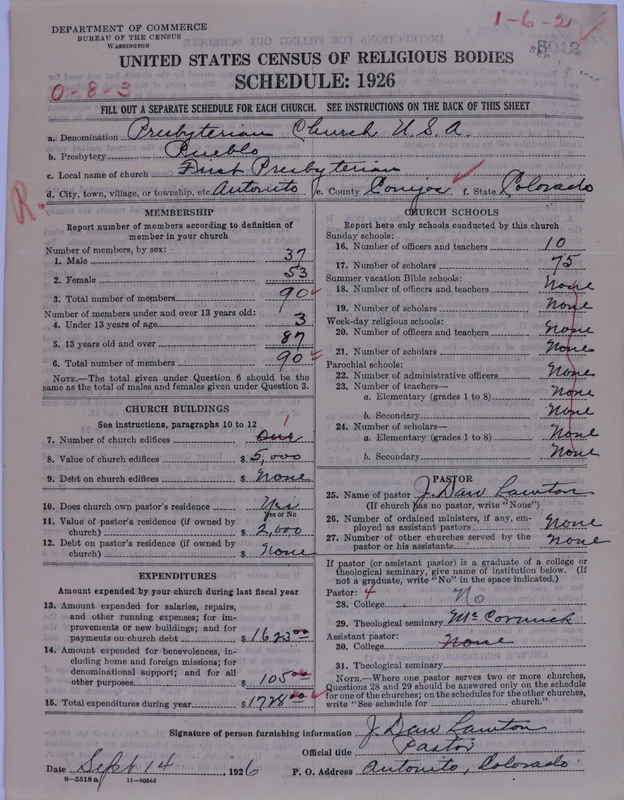 DEPARTMENT OF COMMERCE
BUREAU OF THE CENSUS
WASHINGTON
1-6-2
8012
UNITED STATES CENSUS OF RELIGIOUS BODIES
SCHEDULE: 1926
0-8-3
FILL OUT A SEPARATE SCHEDULE FOR EACH CHURCH. SEE INSTRUCTIONS ON THE BACK OF THIS SHEET
a. Denomination Presbyterian Church U.S.A.
b. Presbytery Pueblo
c. Local name of church First Presbyterian
d. City, town, village, or township, etc. Antonito e. County Conejos f. State Colorado
R.
MEMBERSHIP
Report number of members according to definition of member in your church
Number of members, by sex:
1. Male 37
2. Female 53
3. Total number of members 90
Number of members under and over 13 years old:
4. Under 13 years of age 3
5. 13 years old and over 87
6. Total number of members 90
NOTE.—The total given under Question 6 should be the same as the total of males and females given under Question 3.
CHURCH BUILDINGS
See instructions, paragraphs 10 to 12
7. Number of church edifices One 1
8. Value of church edifices $ 5,000
9. Debt on church edifices $ None
10. Does church own pastor's residence Yes
Yes or No
11. Value of pastor's residence (if owned by church) $ 2,000
12. Debt on pastor's residence (if owned by church) $ None
EXPENDITURES
Amount expended by your church during last fiscal year
13. Amount expended for salaries, repairs, and other running expenses; for improvements or new buildings; and for payments on church debt $ 1623.00
14. Amount expended for benevolences, including home and foreign missions; for denominational support; and for all other purposes $ 105.00
15. Total expenditures during year $ 1728.00
CHURCH SCHOOLS
Report here only schools conducted by this church
Sunday schools:
16. Number of officers and teachers 10
17. Number of scholars 75
Summer vacation Bible schools:
18. Number of officers and teachers None
19. Number of scholars None
Week-day religious schools:
20. Number of officers and teachers None
21. Number of scholars None
Parochial schools:
22. Number of administrative officers None
23. Number of teachers—
a. Elementary (grades 1 to 8) None
b. Secondary None
24. Number of scholars—
a. Elementary (grades 1 to 8) None
b. Secondary None
PASTOR
25. Name of pastor J. Daw Lawton
(If church has no pastor, write "None")
26. Number of ordained ministers, if any, employed as assistant pastors None
27. Number of other churches served by the pastor or his assistants None
If pastor (or assistant pastor) is a graduate of a college or theological seminary, give name of institution below. (If not a graduate, write "No" in the space indicated.)
Pastor: 4
28. College No
29. Theological seminary McCormick
Assistant pastor:
30. College None
31. Theological seminary
NOTE.—Where one pastor serves two or more churches, Questions 28 and 29 should be answered only on the schedule for one of the churches; on the schedules for the other churches, write "See schedule for church."
Signature of person furnishing information J. Daw Lawton
Official title Pastor
Date Sept 14, 1926 P. O. Address Antonito, Colorado
8-2518a